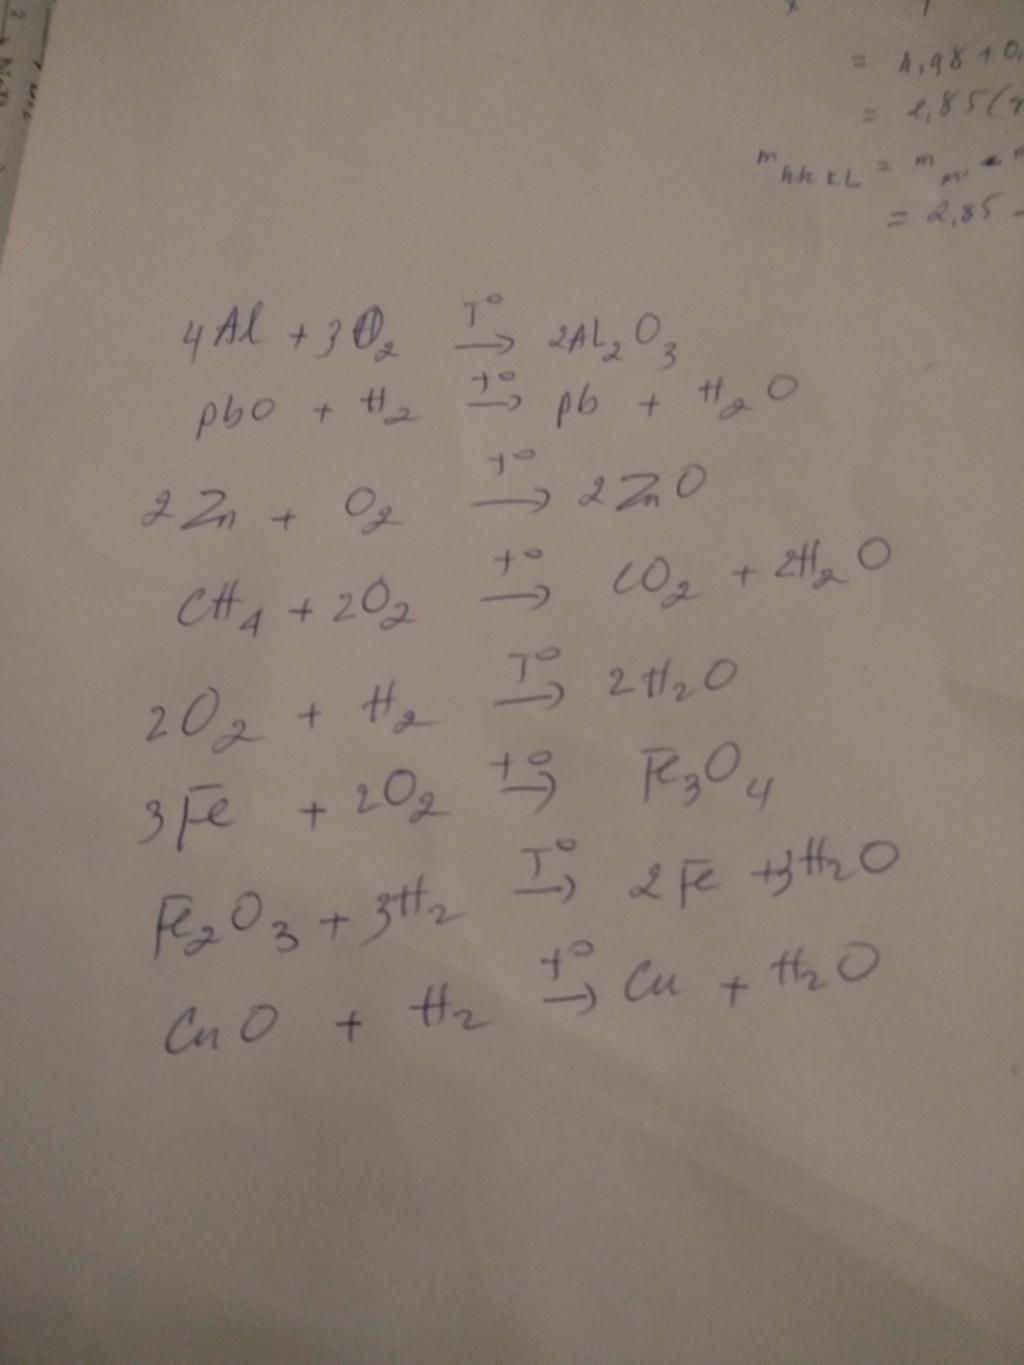 = 1,98 + 0,
= 2,85 (
m hh KL = m
= 2,85 -
4Al + 3O₂ T° → 2Al₂O₃
pbO + H₂ t° → pb + H₂O
2Zn + O₂ t° → 2ZnO
CH₄ + 2O₂ t° → CO₂ + 2H₂O
2O₂ + H₂ T° → 2H₂O
3Fe + 2O₂ t° → Fe₃O₄
Fe₂O₃ + 3H₂ T° → 2Fe + 3H₂O
CuO + H₂ t° → Cu + H₂O